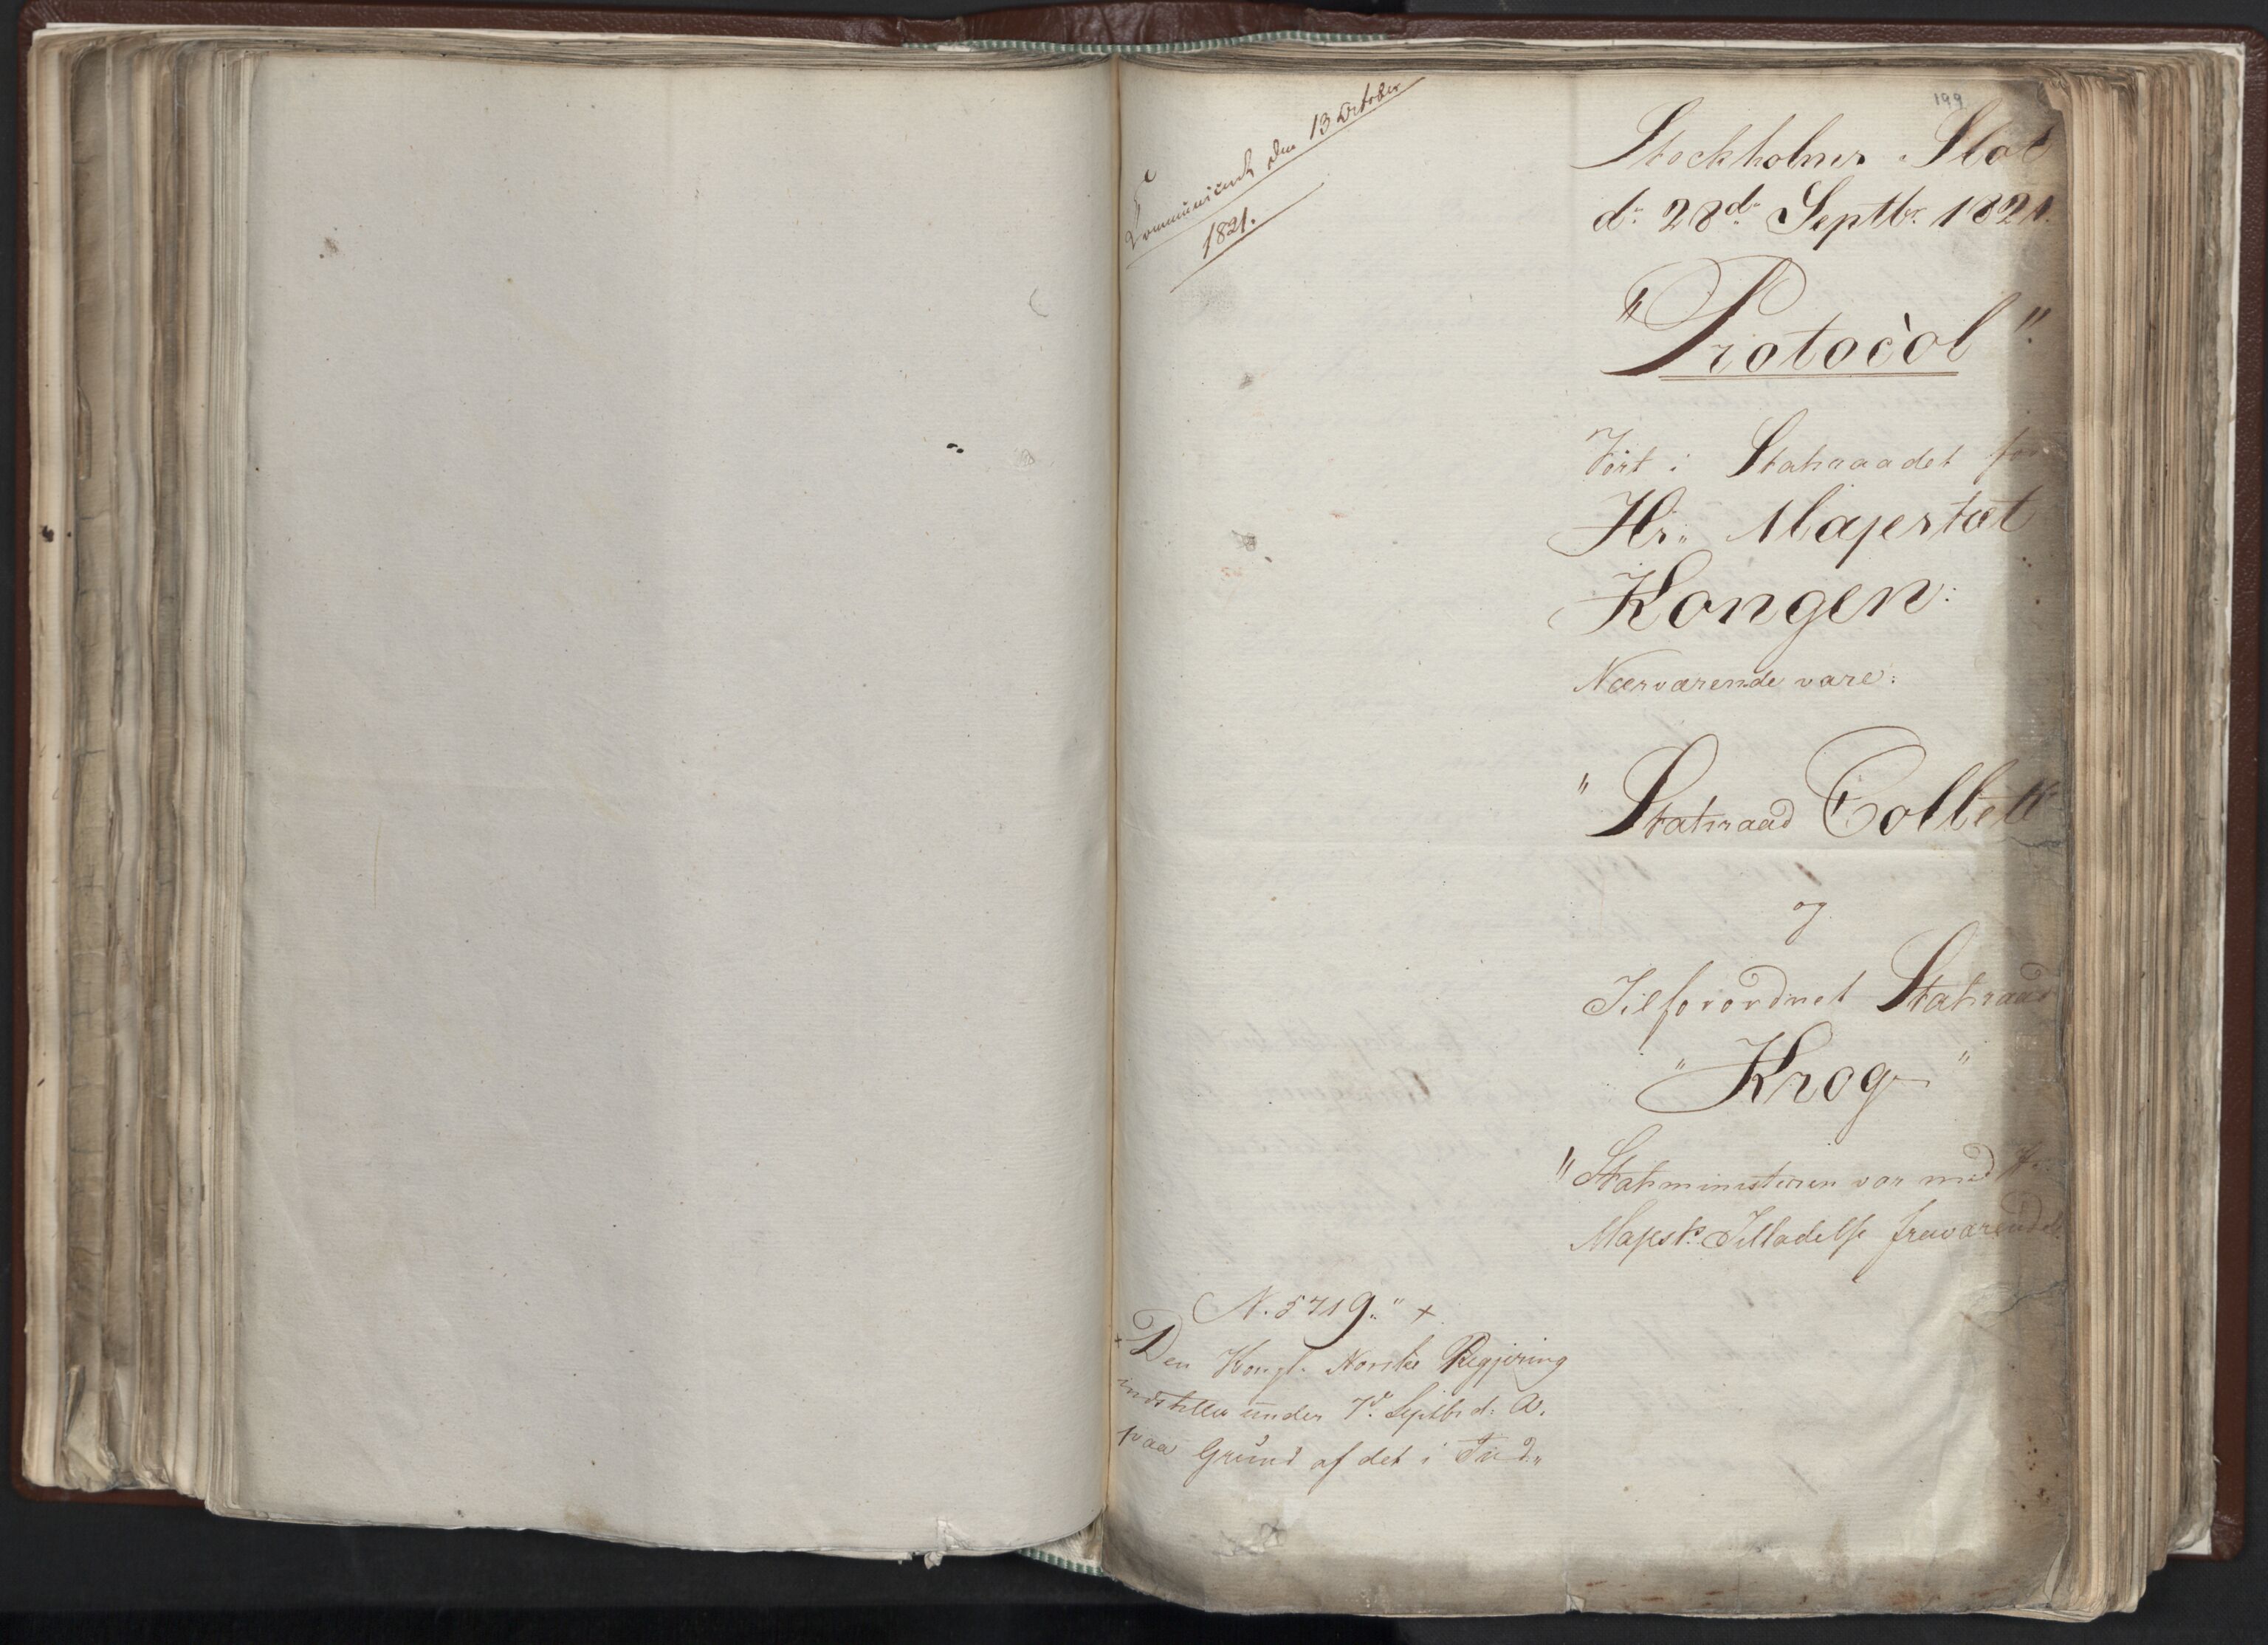 199
Communiceret den 13 October
1821.
Stockholms Slot
d: 28de Septbr. 1821.
"Protocol"
Ført i Statsraadet for
Hs: Majestæt
Kongen:
Nærværende vare:
"Statsraad Collett
og
Tilforordnet Statsraad
"Krog"
"Statsministeren var med Hs
Majsts Tilladelse fraværende.
N. 5719." +
+ Den Kongl. Norske Regjering
indstiller under 7d: Septbr d: A.
paa Grund af det i Ind„